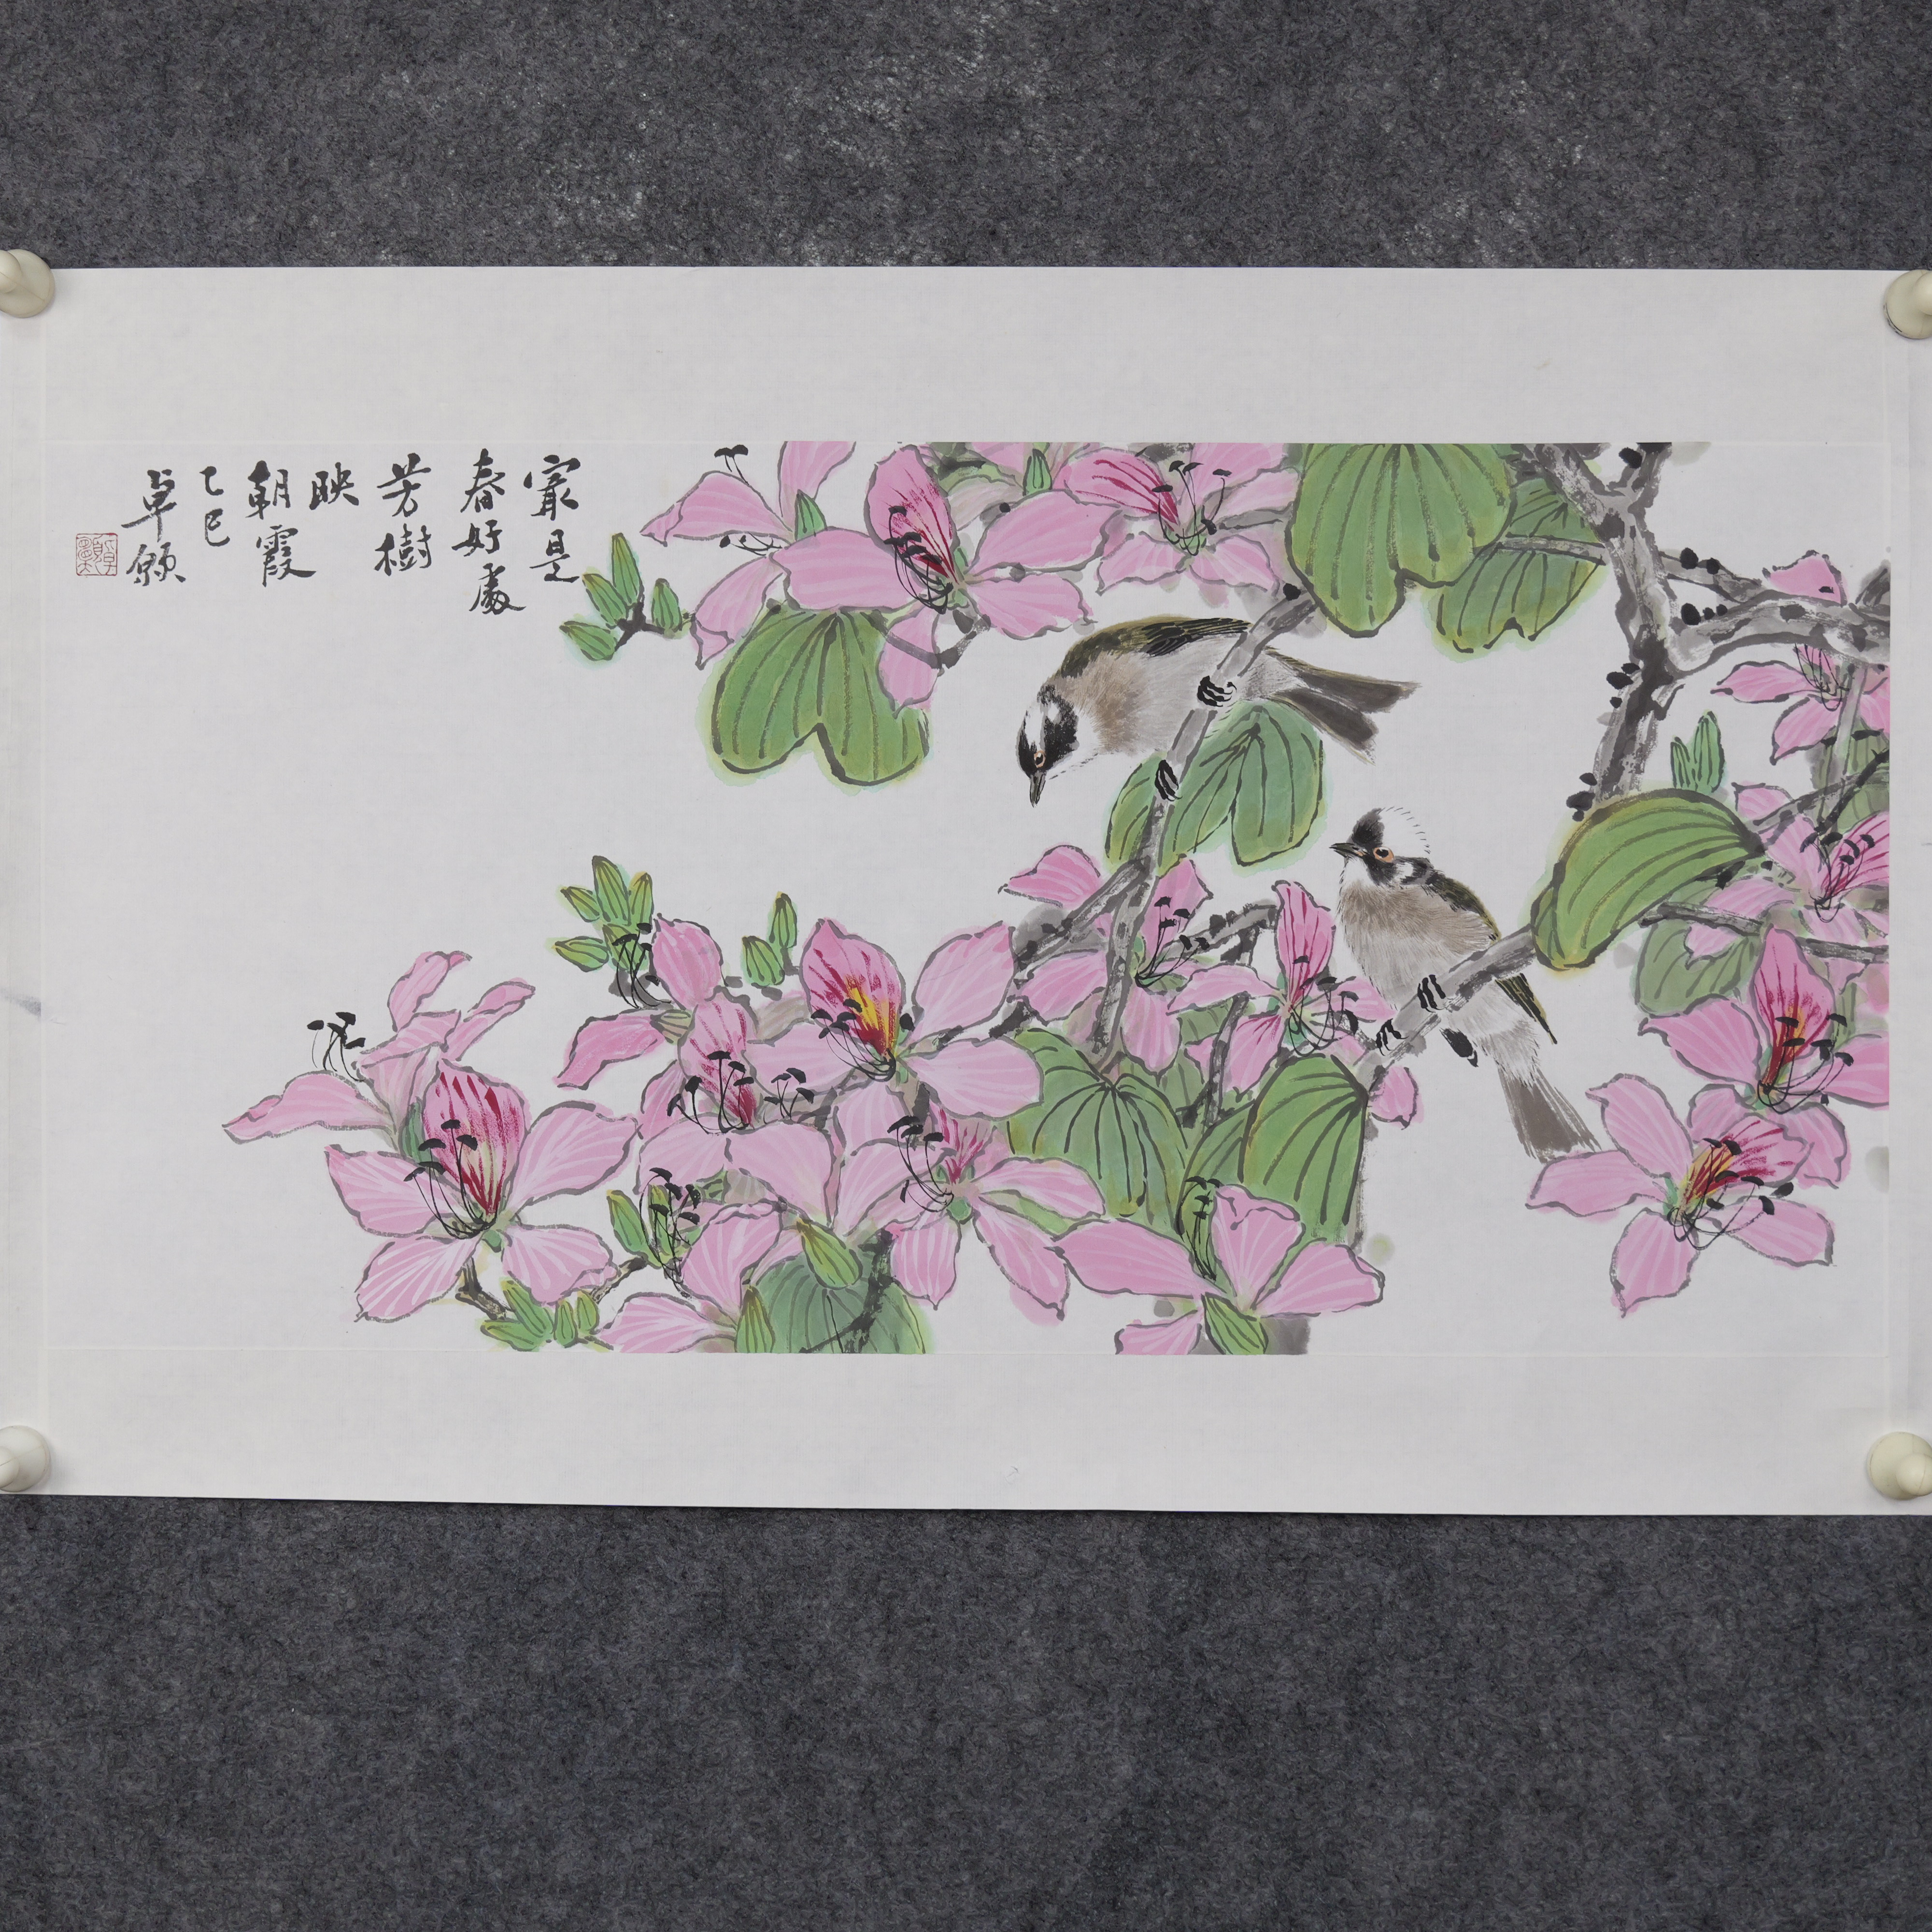 最是
春好處
芳樹
映
朝霞
乙巳
卓